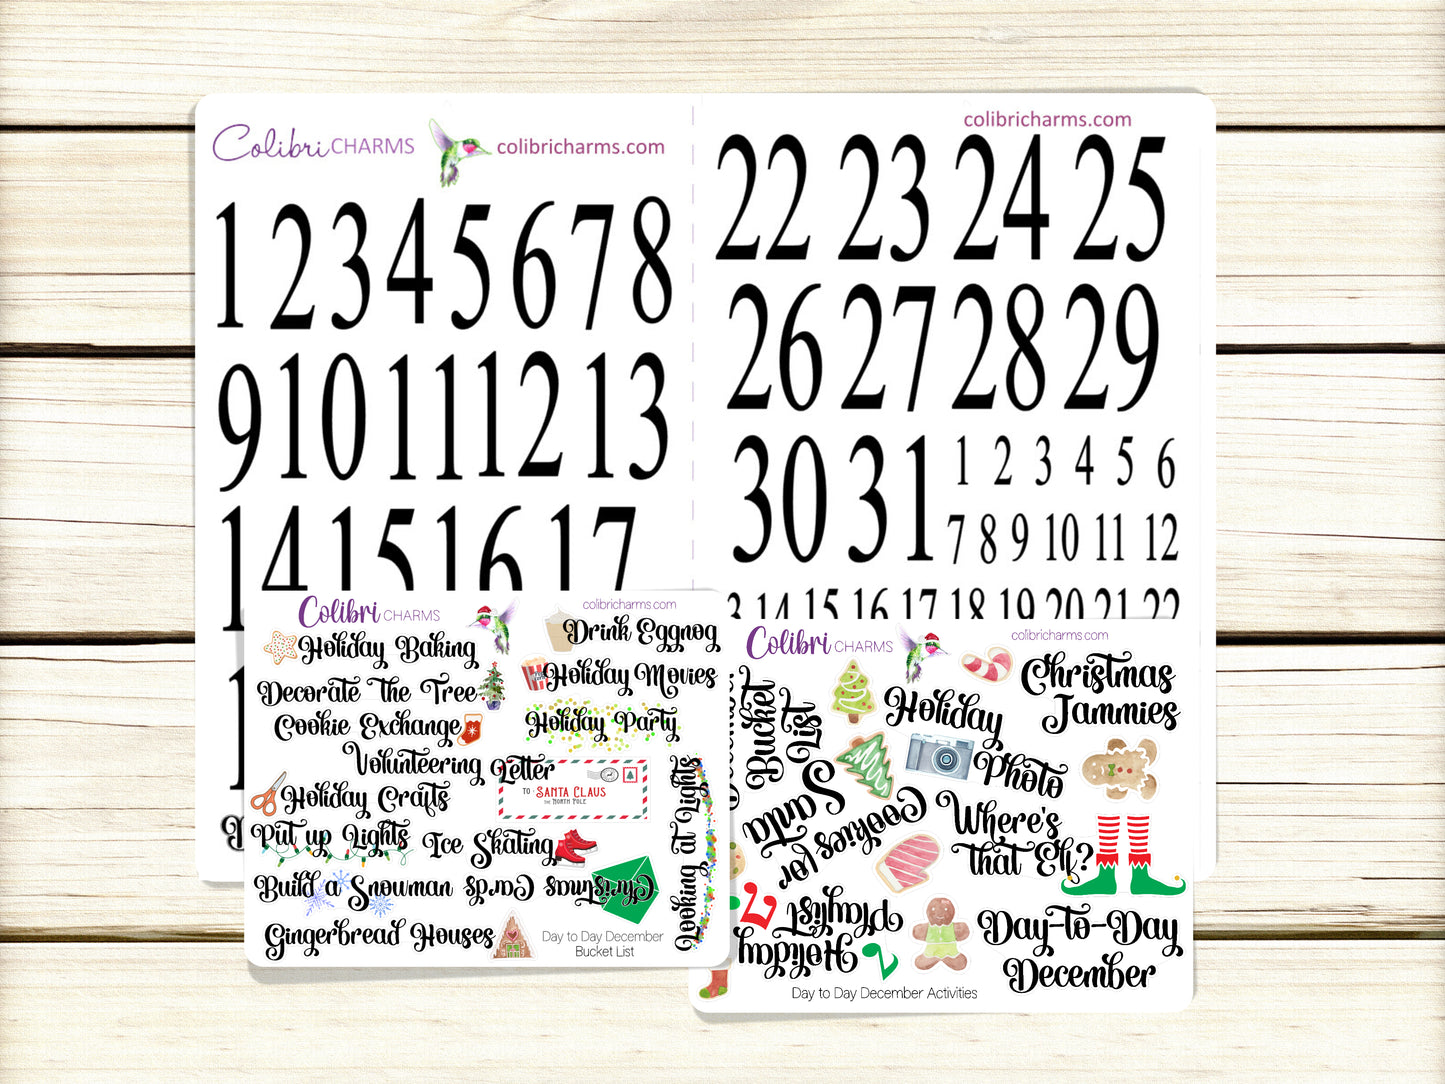 Colibri CHARMS colibricharms.com
1 2 3 4 5 6 7 8
9 10 11 12 13
14 15 16 17
colibricharms.com
22 23 24 25
26 27 28 29
30 31
1 2 3 4 5 6
7 8 9 10 11 12
14 15 16 17 18 19 20 21 22
Colibri CHARMS
colibricharms.com
Holiday Baking
Drink Eggnog
Decorate the Tree
Holiday Movies
Cookie Exchange
Holiday Party
Volunteering
Letter
TO: SANTA CLAUS
THE NORTH POLE
Holiday Crafts
Put up Lights
Ice Skating
Looking at Lights
Build a Snowman
Christmas Cards
Gingerbread Houses
Day to Day December
Bucket List
Colibri CHARMS
colibricharms.com
Christmas
Jammies
Bucket
List
Holiday
Photo
Cookies for
Santa
Where's
that Elf?
Holiday
Playlist
Day-to-Day
December
Day to Day December Activities